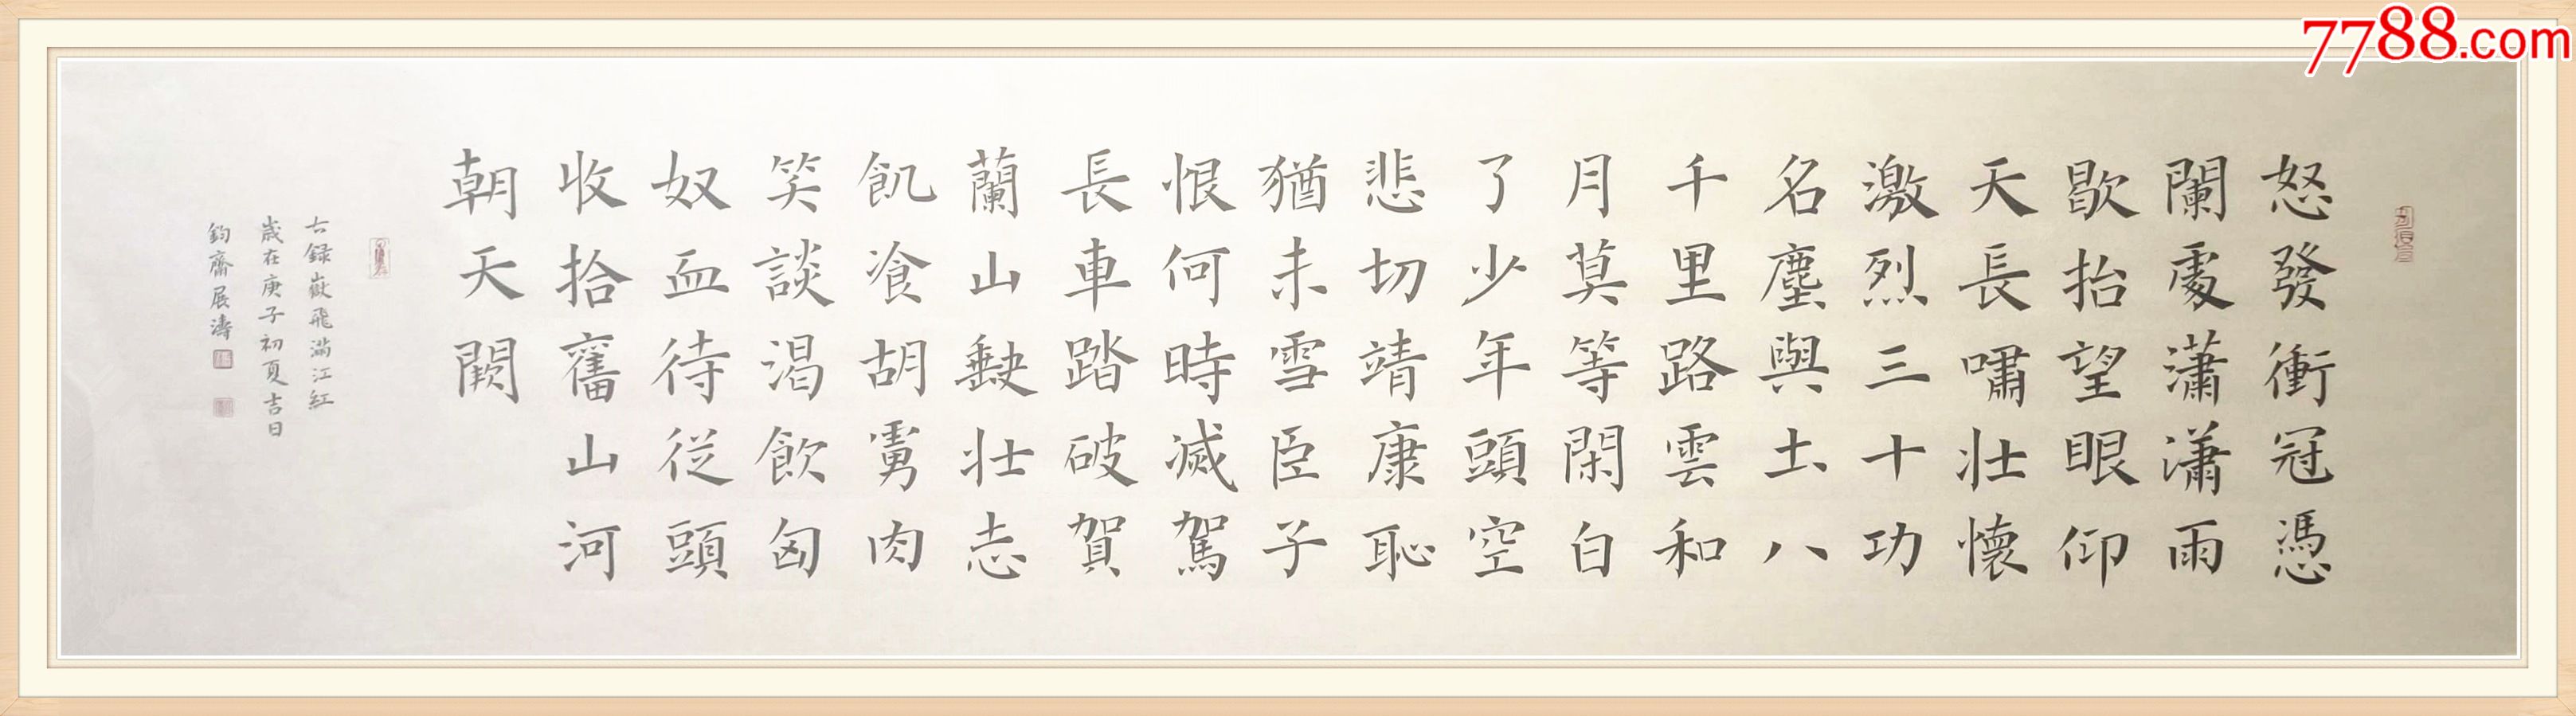 怒發衝冠憑
闌處瀟瀟雨
歇抬望眼仰
天長嘯壯懷
激烈三十功
名塵與土八
千里路雲和
月莫等閑白
了少年頭空
悲切靖康恥
猶未雪臣子
恨何時滅駕
長車踏破賀
蘭山缺壯志
飢飡胡虜肉
笑談渴飲匈
奴血待從頭
收拾舊山河
朝天闕
古錄嶽飛滿江紅
歲在庚子初夏吉日
鈞齋展濤
7788.com